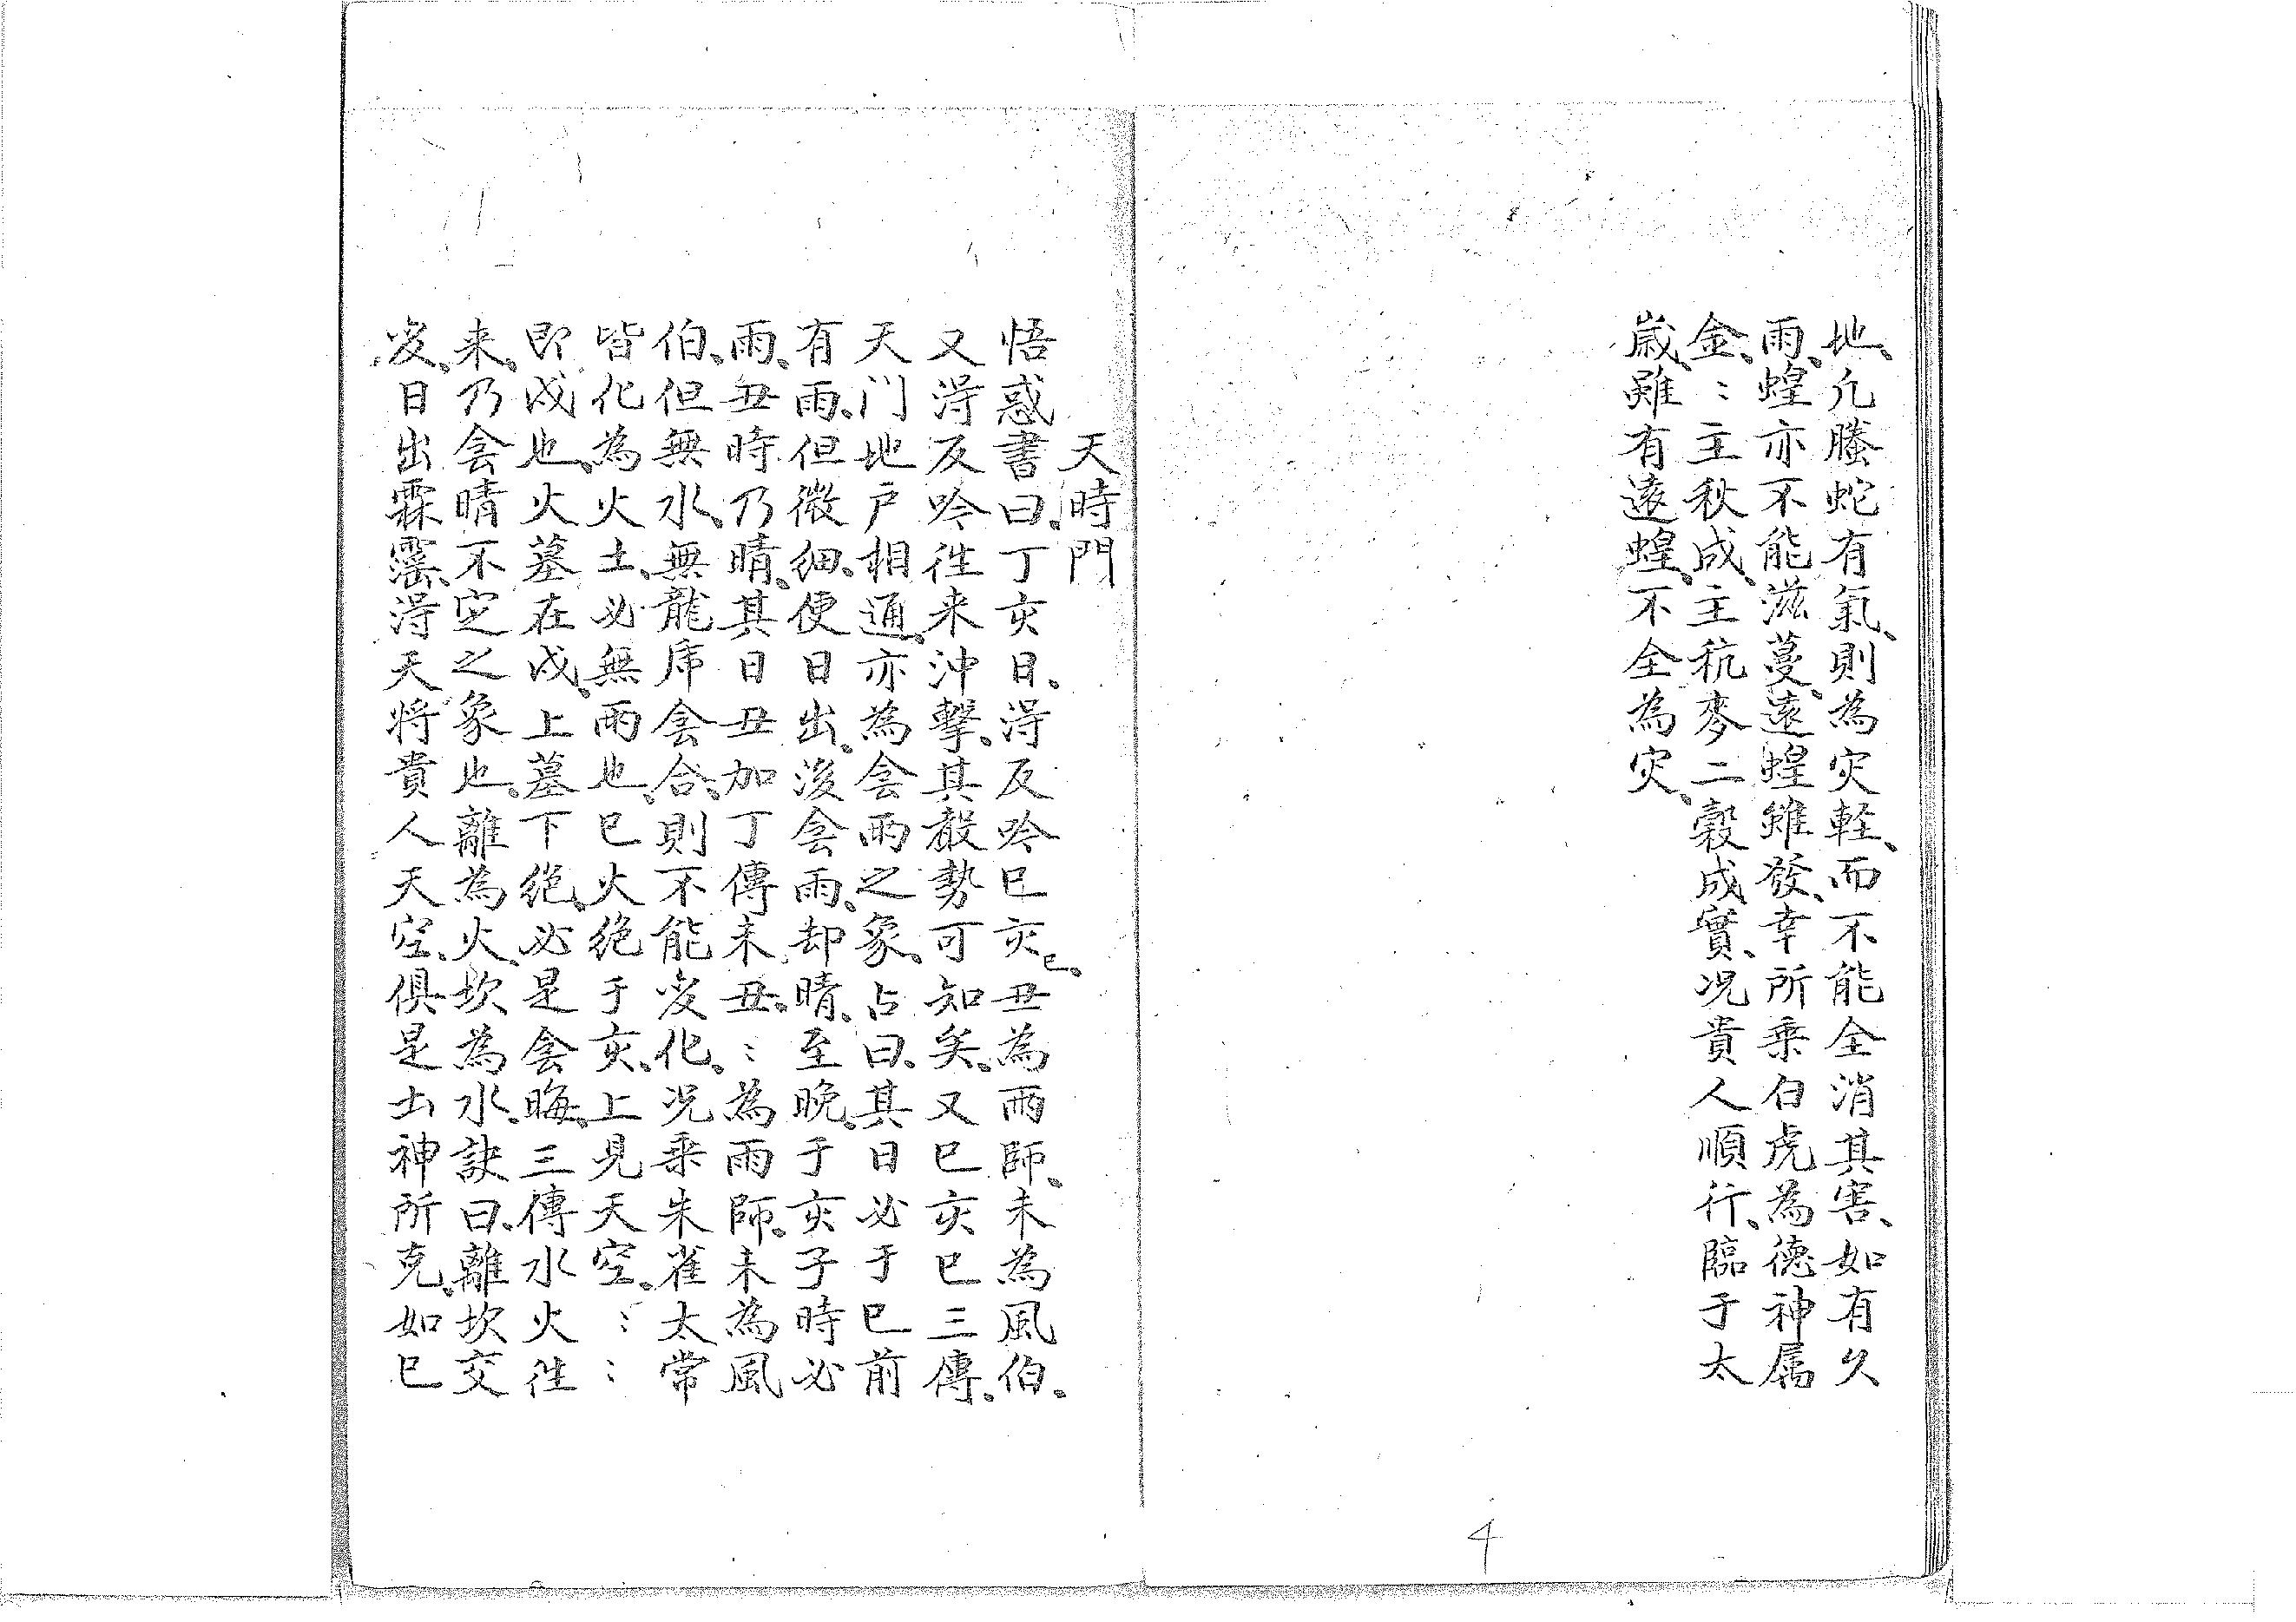 地、凢螣蛇有氣、則為灾軽、而不能全消其害、如有久
雨、蝗亦不能滋蔓、遠蝗雖發、幸所乗白虎為德神属
金、〻主秋成、主秔麥二穀成實、况貴人順行、臨于太
嵗、雖有遠蝗、不全為灾、
天時門
悟惑書曰、丁亥日、淂反吟巳亥巳、丑為雨師、未為風伯、
又淂反吟徃来沖擊、其殺勢可知矣、又巳亥巳三傳、
天门地户相通、亦為会雨之象、占曰、其日必于巳前
有雨、但微细、便日出、後会雨、却晴、至晚、于亥子時必
雨、丑時乃晴、其日丑加丁傳未丑、〻為雨師、未為風
伯、但無水、無龍虎会合、則不能变化、况乗朱雀太常
皆化為火土、必無雨也、巳火绝于亥、上見天空、〻〻
即戌也、火墓在戌、上墓下绝、必是会晦、三傳水火徃
来、乃会晴不定之象也、離為火、坎為水、訣曰、離坎交
变、日出霖霪、淂天将貴人天空、俱是土神所克、如巳
4